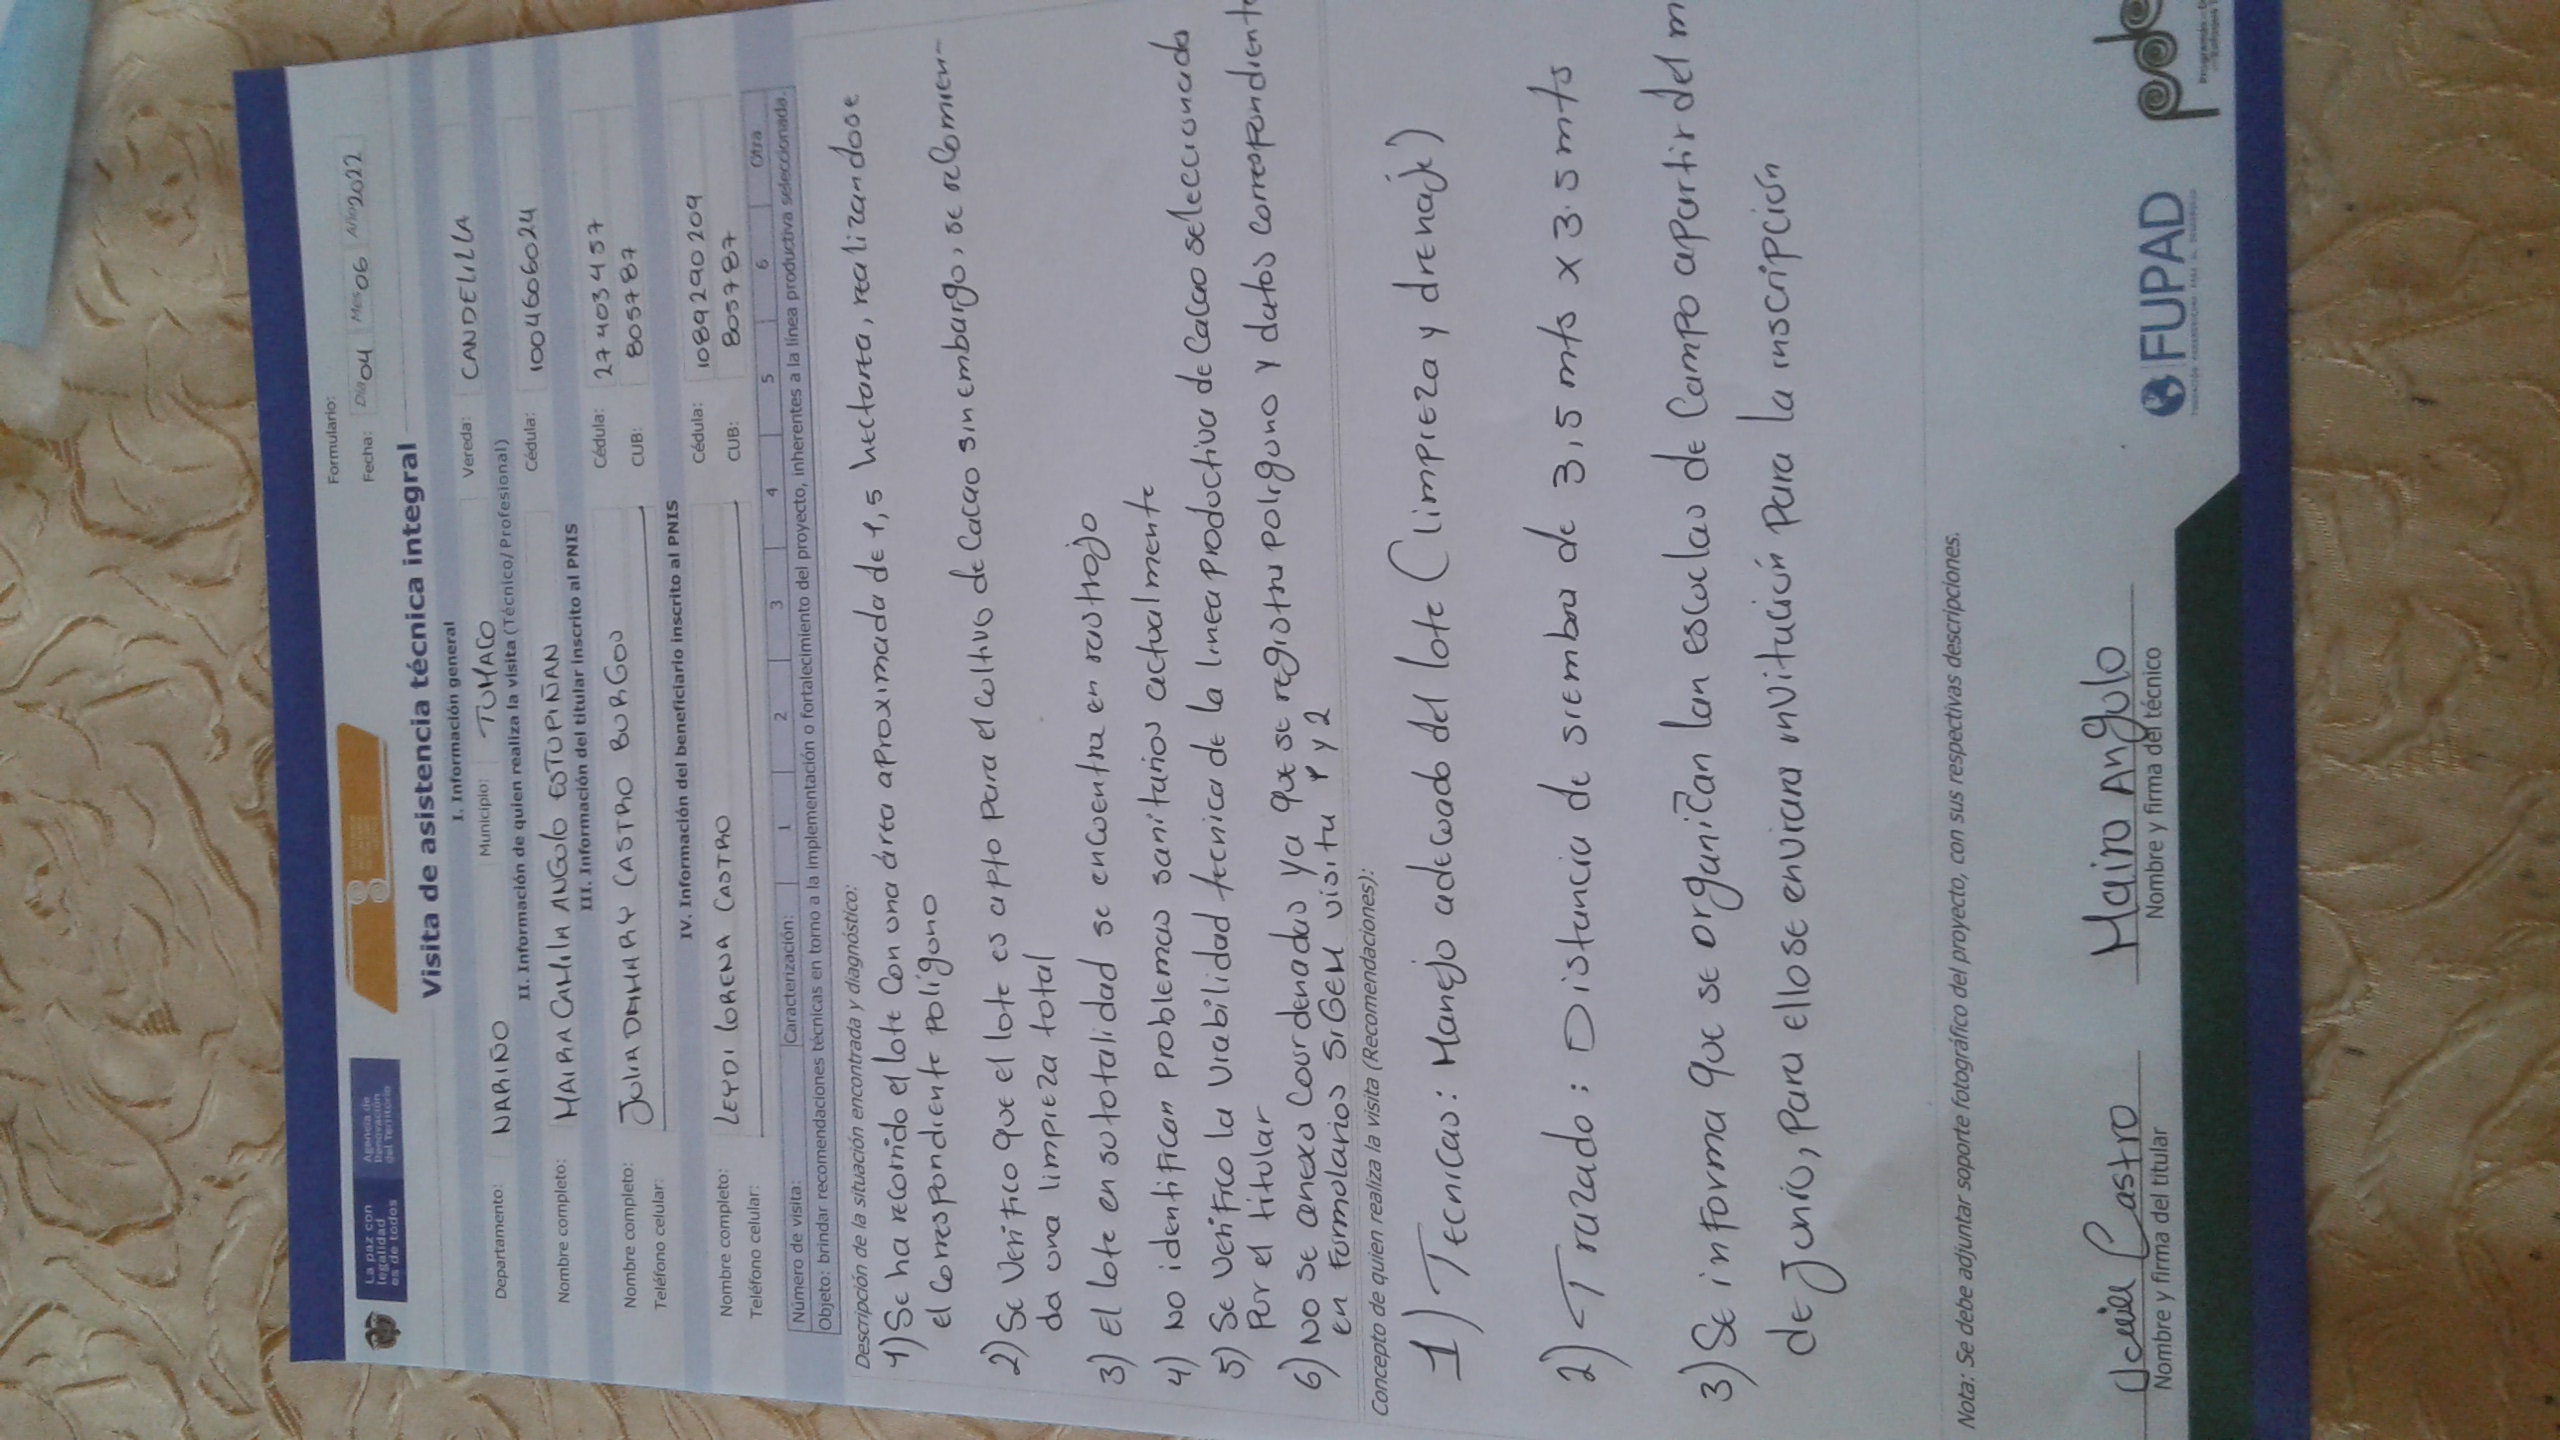 La paz con
legalidad
es de todos
Agencia de
Renovación
del Territorio
Formulario:
Fecha: Día 04 Mes 06 Año 2022
Visita de asistencia técnica integral
I. Información general
Departamento: NARIÑO Municipio: TUMACO Vereda: CANDELILLA
II. Información de quien realiza la visita (Técnico/Profesional)
Nombre completo: MAIRA CAMILA ANGULO ESTUPIÑAN Cédula: 1004606024
III. Información del titular inscrito al PNIS
Nombre completo: JULIA CASTRO BURGOS Cédula: 27403457
Teléfono celular: CUB: 805787
IV. Información del beneficiario inscrito al PNIS
Nombre completo: LEYDI LORENA CASTRO Cédula: 1089290209
Teléfono celular: CUB: 805787
Número de visita: Caracterización: 1 2 3 4 5 6 Otra
Objeto: brindar recomendaciones técnicas en torno a la implementación o fortalecimiento del proyecto, inherentes a la línea productiva seleccionada.
Descripción de la situación encontrada y diagnóstico:
1) Se ha recorrido el lote con una área aproximada de 1,5 hectarea, realizandose
el correspondiente poligono
2) Se verifico que el lote es apto para el cultivo de cacao sin embargo, se recomien-
da una limpieza total
3) El lote en su totalidad se encuentra en rastrojo
4) No identifican problemas sanitarios actualmente
5) Se verifico la viabilidad tecnica de la linea productiva de cacao seleccionado
por el titular
6) No se anexa coordenadas ya que se registra poligono y datos correspondiente
en formularios SIGEM visita 1 y 2
Concepto de quien realiza la visita (Recomendaciones):
1) Tecnicas: Manejo adecuado del lote (limpieza y drenaje)
2) Trazado: Distancia de siembra de 3,5 mts x 3.5 mts
3) Se informa que se organizan las escuelas de campo apartir del m
de Junio, para ello se enviara invitación para la inscripción
Nota: Se debe adjuntar soporte fotográfico del proyecto, con sus respectivas descripciones.
Castro Maira Angulo
Nombre y firma del titular Nombre y firma del técnico
FUPAD